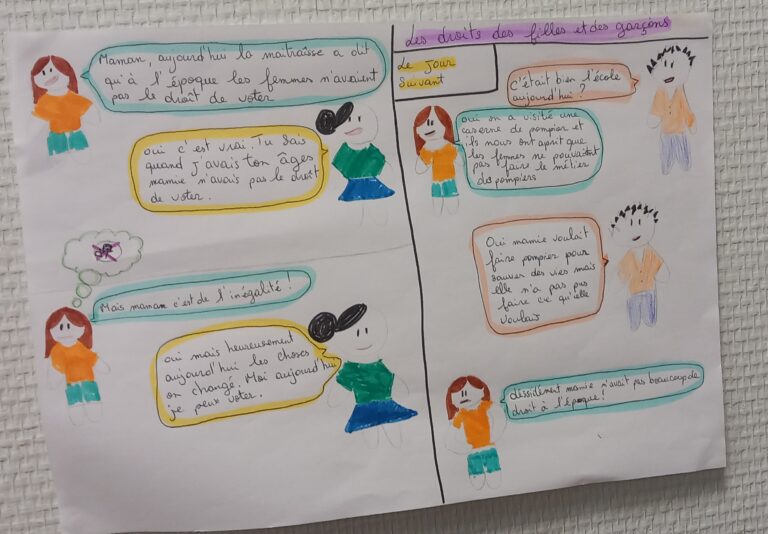 Maman, aujourd'hui la maitraîsse a dit
qu'à l'époque les femmes n'avaient
pas le droît de voter
oui c'est vrai. Tu sais
quand j'avais ton âges
mamie n'avais pas le droît
de voter.
Mais maman c'est de l'inégalité !
oui mais heureusement
aujourd'hui les choses
on changé. Moi aujourd'hui
je peux voter.
Les droits des filles et des garçons
Le Jour
Suivant
C'était bien l'école
aujourd'hui ?
oui on a visité une
caserne de pompier et
ils nous ont aprit que
les femmes ne pouvaient
pas faire le métier
de pompiers
Oui mamie voulait
faire pompier pour
sauver des vies mais
elle n'a pas pus
faire ce qu'elle
voulais
déssidément mamie n'avait pas beaucoup de
droit à l'époque !